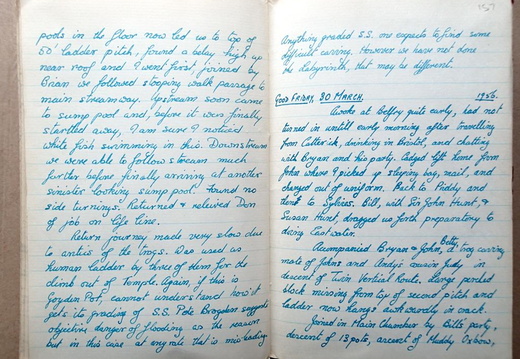 pools in the floor now led us to top of
50' ladder pitch, found a belay high up
near roof and I went first, joined by
Brian we followed stooping walk passage to
main streamway. Upstream, soon came
to sump pool and, before it was finally
startled away, I am sure I noticed
white fish swimming in this. Downstream
we were able to follow stream much
further before finally arriving at another
sinister looking sump pool. Found no
side turnings. Returned & relieved Don
of job on life line.
Return journey made very slow due
to antics of the trogs. Was used as
human ladder by three of them for the
climb out of Temple. Again, if this is
Goyden Pot, cannot understand how it
gets its grading of S.S. Pete Brogden suggests
objective danger of flooding as the reason
but in this case at any rate that is misleading
157
Anything graded S.S. one expects to find some
difficult caving. However we have not done
the Labyrinth, that may be different.
GOOD FRIDAY, 30 MARCH. 1956.
Awoke at Belfry quite early, had not
turned in until early morning after travelling
from Catterick, drinking in Bristol, and chatting
with Bryan and his party. Cadged lift home from
John where I picked up sleeping bag, mail, and
changed out of uniform. Back to Priddy and
went to Bill, with Sir John Hunt, &
Susan Hunt dragged us forth preparatory to
doing Eastwater.
Accompanied Bryan & John, Betty, a trog caving
mate of Johns and Andy's cousin Judy in
descent of Twin Vertical Route. Large perched
block missing from top of second pitch and
ladder now hangs awkwardly in crack.
Joined in Main Chamber by Bills party,
descent of 13 pots, ascent of Muddy Oxbow,